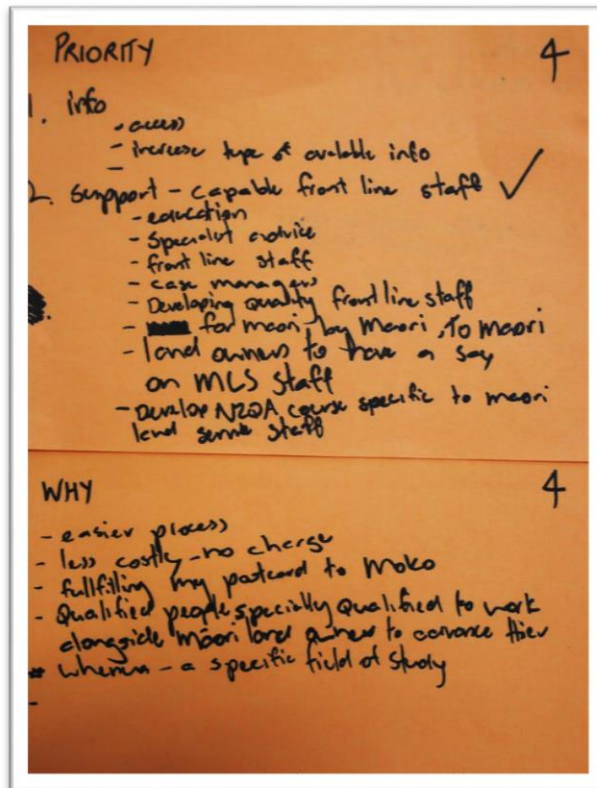 PRIORITY 4
1. info
- access
- increase type of available info
-
2. support - capable front line staff ✓
- education
- Specialist advice
- front line staff
- case managers
- Developing quality front line staff
- for maori by Maori, To maori
- land owners to have a say
on MLS staff
- Develop NZQA course specific to maori
land service staff
WHY 4
- easier process
- less costly - no charge
- fullfilling my postcard to Moko
- Qualified people specially Qualified to work
alongside Māori land owners to advance thier
whenua - a specific field of study
-